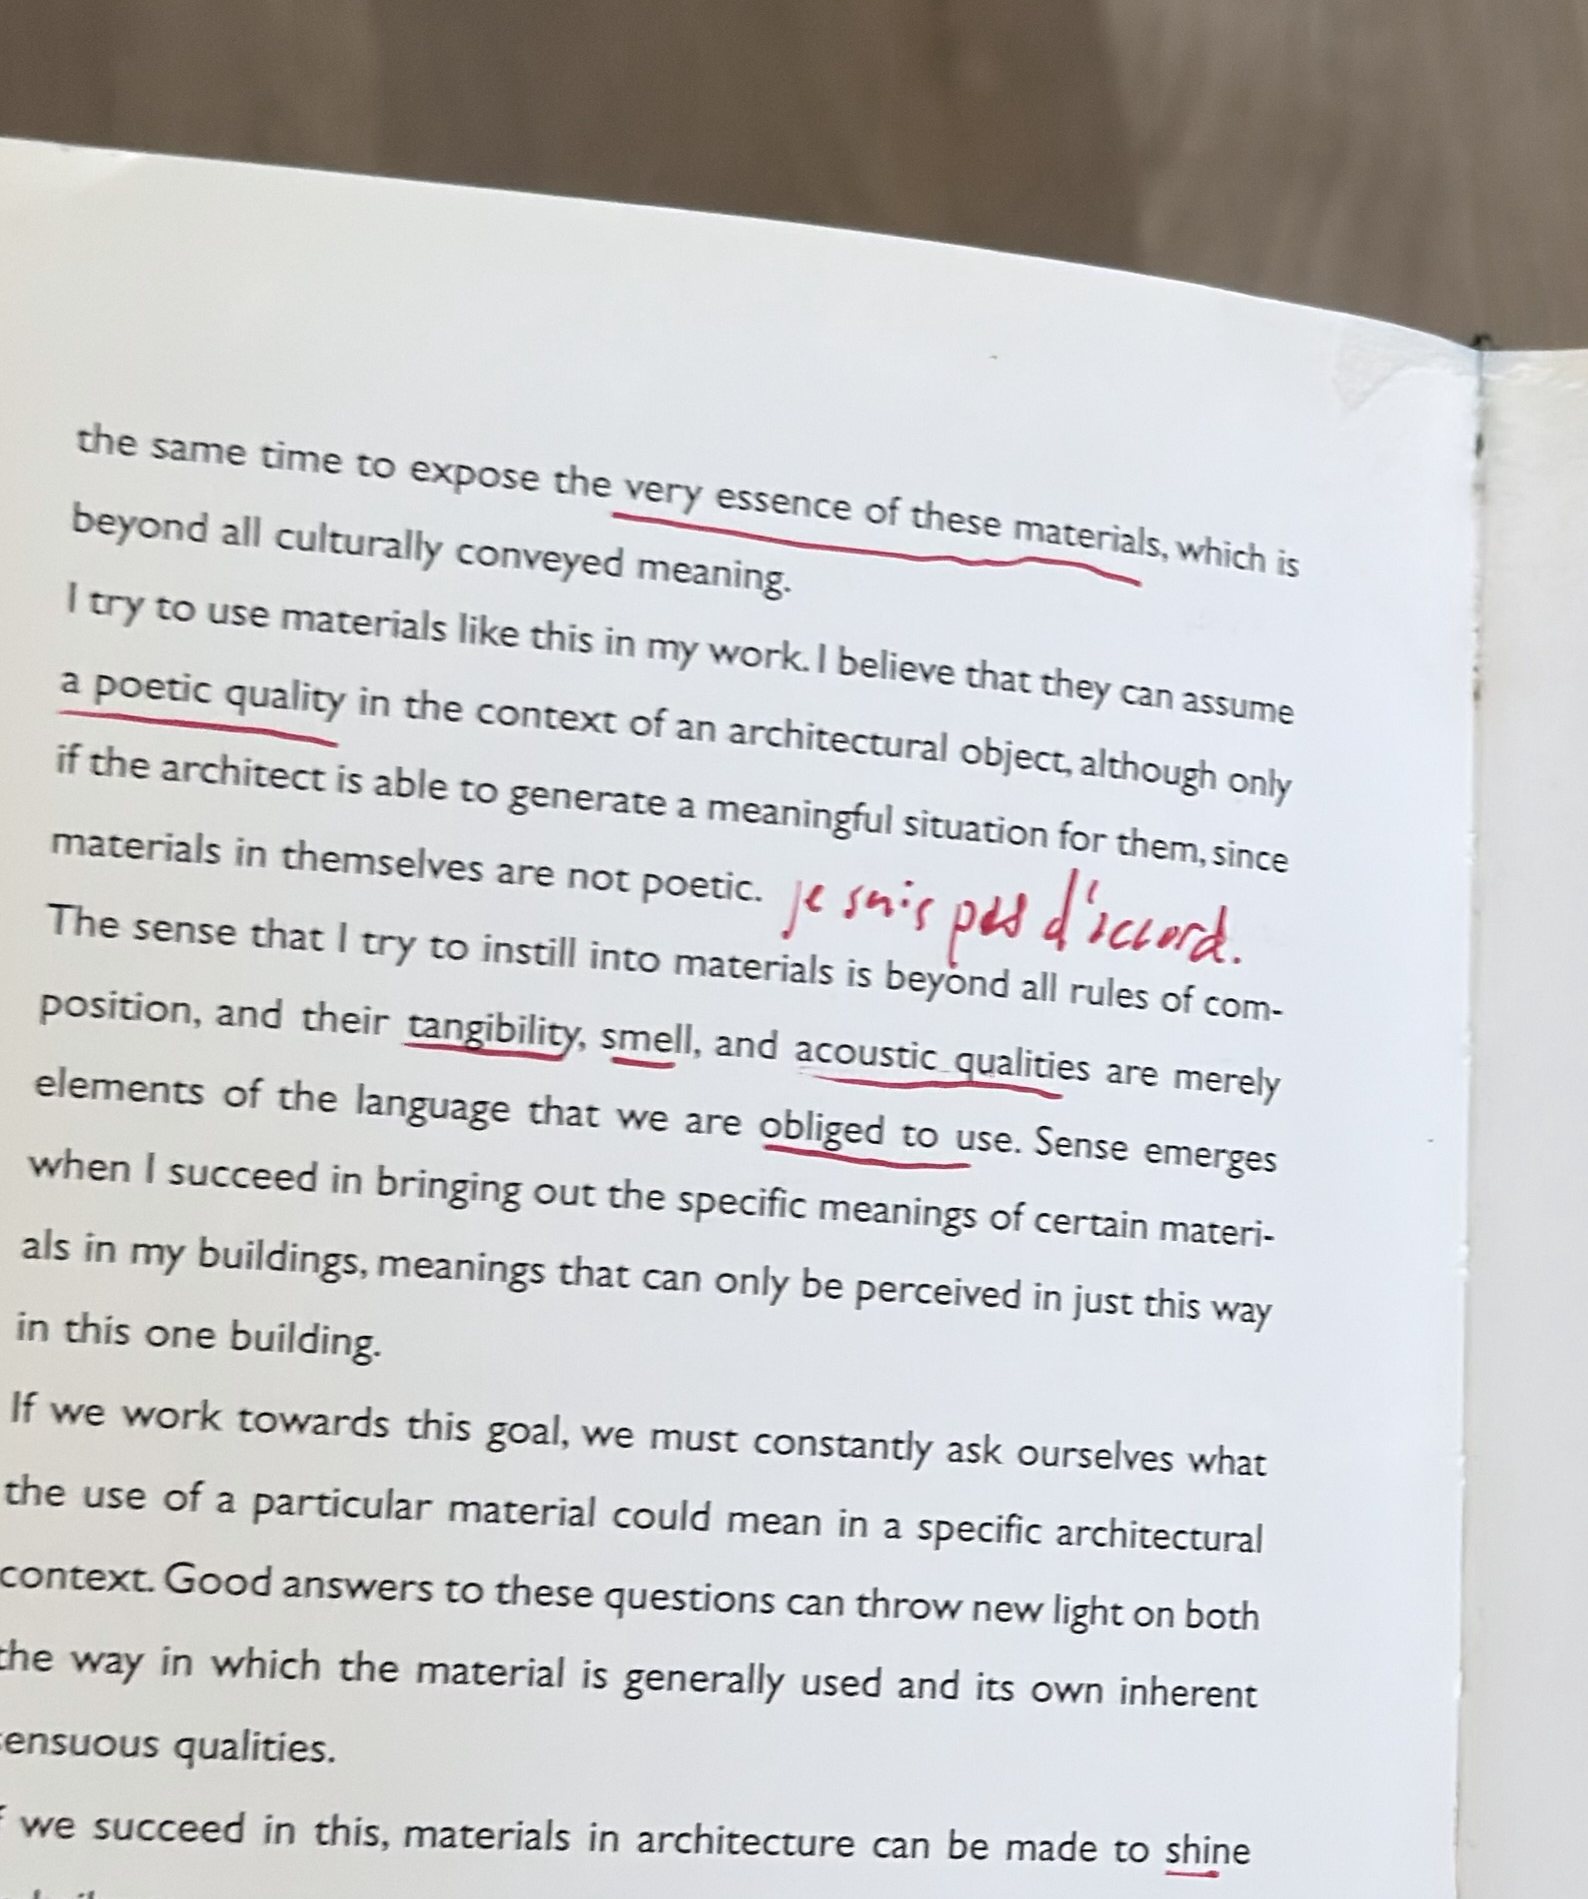 the same time to expose the very essence of these materials, which is
beyond all culturally conveyed meaning.
I try to use materials like this in my work. I believe that they can assume
a poetic quality in the context of an architectural object, although only
if the architect is able to generate a meaningful situation for them, since
materials in themselves are not poetic. je suis pas d'accord.
The sense that I try to instill into materials is beyond all rules of com-
position, and their tangibility, smell, and acoustic qualities are merely
elements of the language that we are obliged to use. Sense emerges
when I succeed in bringing out the specific meanings of certain materi-
als in my buildings, meanings that can only be perceived in just this way
in this one building.
If we work towards this goal, we must constantly ask ourselves what
the use of a particular material could mean in a specific architectural
context. Good answers to these questions can throw new light on both
the way in which the material is generally used and its own inherent
sensuous qualities.
we succeed in this, materials in architecture can be made to shine